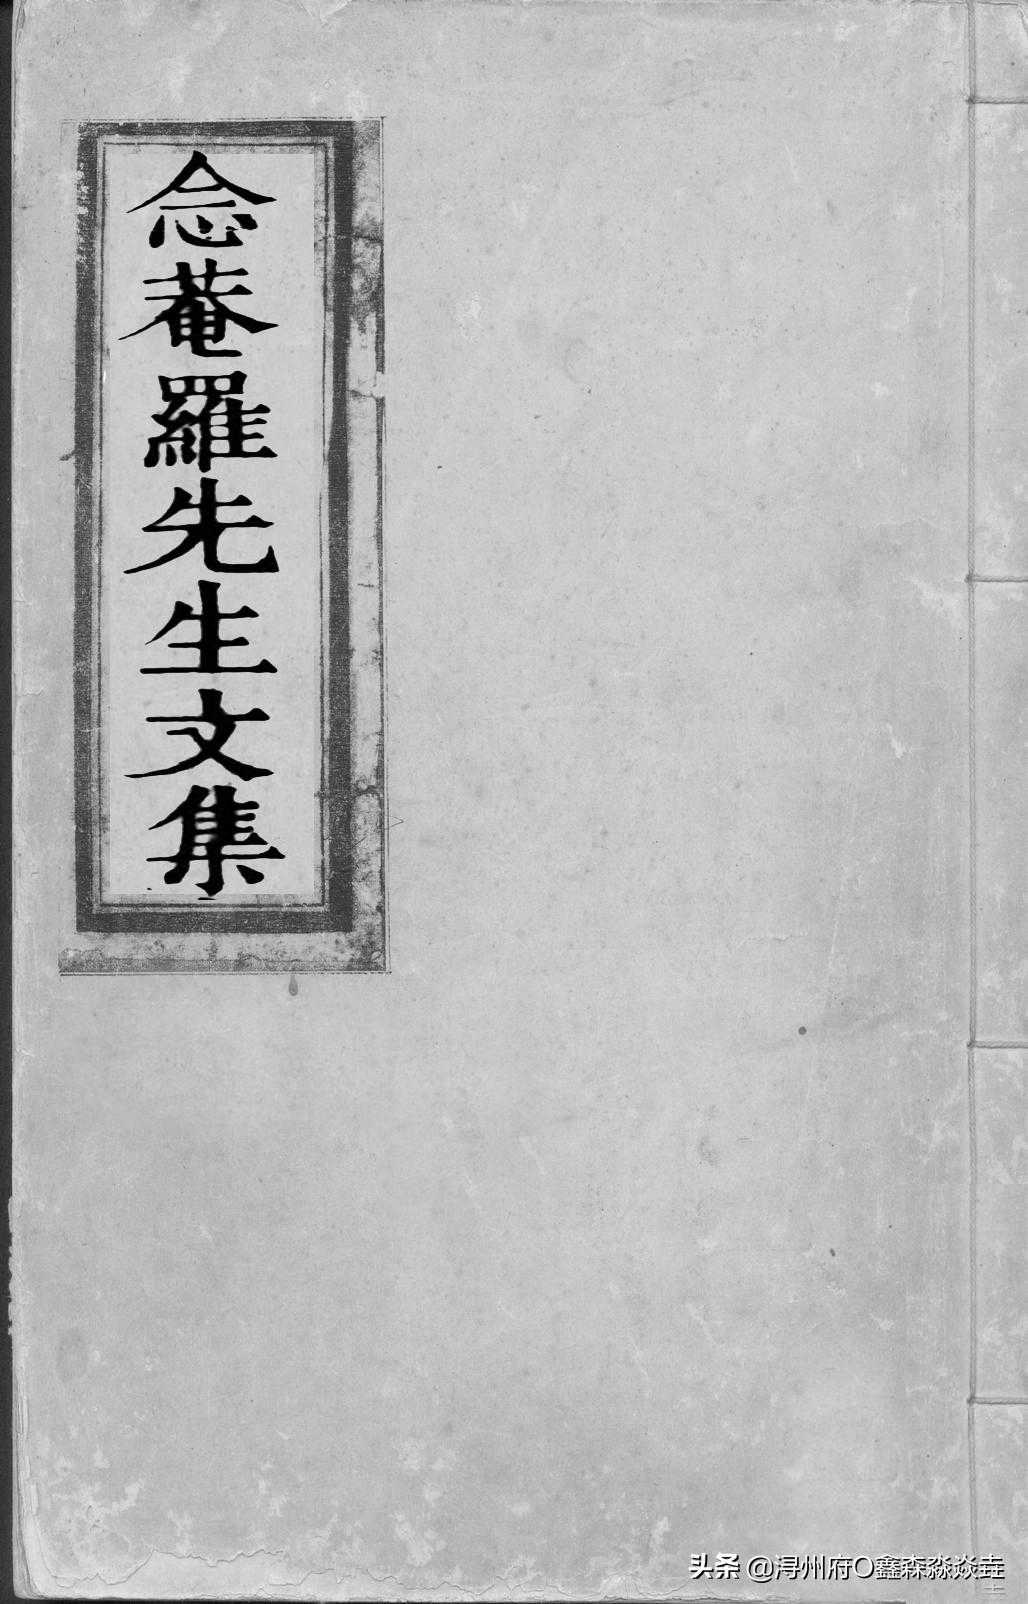 念菴羅先生文集
头条 @浔州府O鑫森淼焱垚